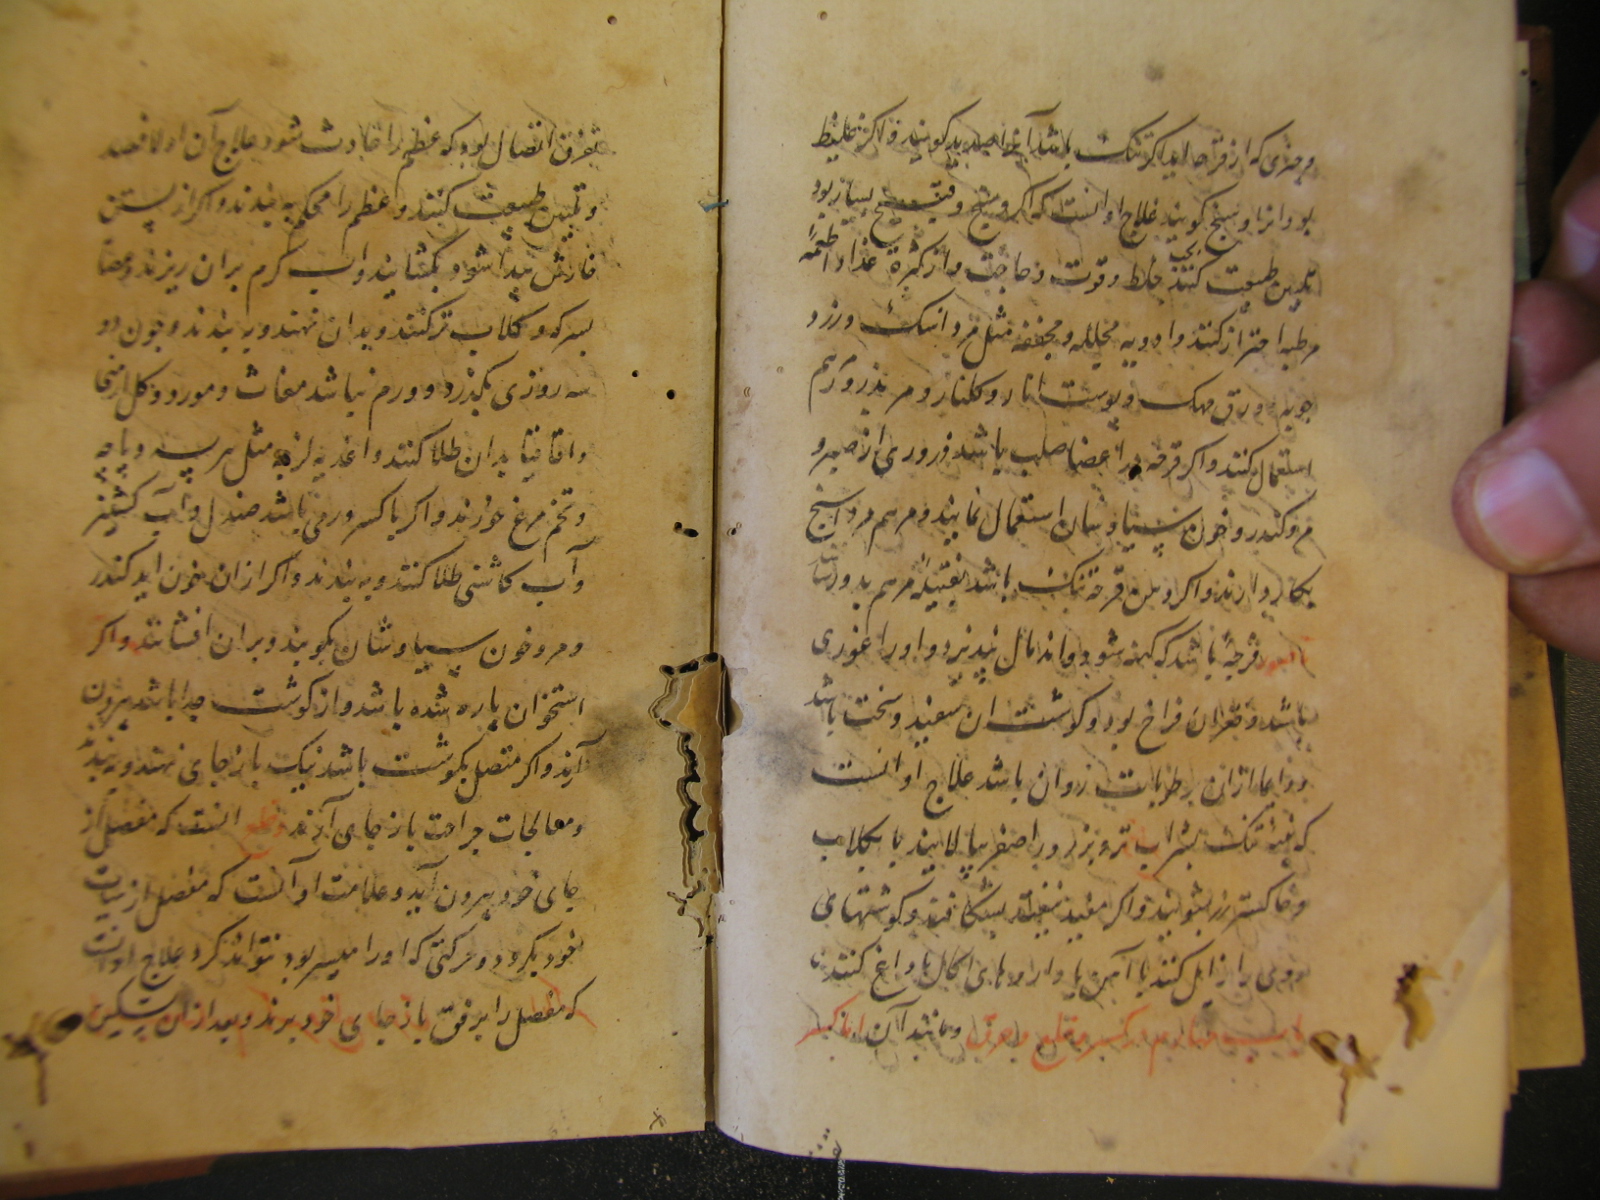 و چیزی که از قرحه آید اگر تنک باشد آنرا صدید گویند و اگر غلیظ
بود آنرا وسخ گویند علاج او آنست که اگر وسخ و قیح بسیار بود
تلیین طبیعت کنند بحسب خلط و قوت و حاجت و از کثرة غذا و اطعمهٔ
مرطبه احتراز کنند و ادویه محلله و مجففه مثل مرداسنک و زرد
چوبه و ورق مهک و پوست انار و گلنار و مر بذرور و مرهم
استعمال کنند و اگر قرحه در اعضا صلب باشد ذروری از صبر و
مر و کندر و خون سیاوشان استعمال نمایند و مرهم مرداسنج
بکار دارند و اگر دهن قرحه تنک باشد بفتیله مرهم بدو رسانند
قرحهٔ باشد که کهنه شود و اندمال نپذیرد و او را غوری
باشد و قعر آن فراخ بود و گوشت آن سفید و سخت باشد
و دایما ازان رطوبات روان باشد علاج او آنست
که پنبهٔ تنک بشراب تر و بزرور اصفر بیالایند یا بگلاب
و خاکستر رز بشویند و اگر مفید نیفتد بشکافند و گوشتهای
ردی را زایل کنند یا آهن یا داروهای اکال یا داغ کنند
و مانند آن
تفرق اتصال بود که عظم را حادث شود علاج آن اولا فصد
و تلیین طبیعت کنند و عظم را محکم به بندند و اگر از بستن
خارش پیدا شود بگشایند و آب گرم بران ریزند و
بسرکه و گلاب تر کنند و بدان نهند و به بندند و چون دو
سه روزی بگذرد و ورم نباشد مغاث و مورد و گل ارمنی
و اقاقیا بدان طلا کنند و اغذیه لزجه مثل هریسه و پاچه
و تخم مرغ خورند و اگر با کسر ورمی باشد صندل و آب کشنیز
و آب کاسنی طلا کنند و به بندند و اگر ازان خون آید کندر
و مر و خون سیاوشان بکوبند و بران افشانند و اگر
استخوان پاره شده باشد و از گوشت جدا باشد بیرون
آرند و اگر متصل بگوشت باشد نیک باز جای نهند و به بندند
و معالجات جراحت باز جای آرند و خلع آنست که مفصل از
جای خود بیرون آید و علامت او آنست که مفصل از هیات
خود بگردد و حرکتی که او را میسر بود نتواند کرد علاج او آنست
که مفصل را برفق باز جای خود برند و بعد ازان تسکین